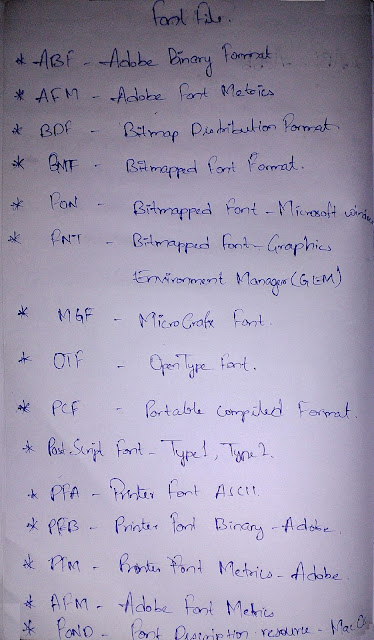 Font File.
* ABF - Adobe Binary Format
* AFM - Adobe Font Metrics
* BDF - Bitmap Distribution Format
* BMF - Bitmapped Font Format.
* FON - Bitmapped Font - Microsoft windows
* FNT - Bitmapped Font - Graphics
Environment Manager (GEM)
* MGF - MicroGrafx Font.
* OTF - OpenType Font.
* PCF - Portable Compiled Format.
* Post.Script Font - Type 1, Type 2.
* PFA - Printer Font ASCII.
* PFB - Printer Font Binary - Adobe.
* PFM - Printer Font Metrics - Adobe.
* AFM - Adobe Font Metrics
* FOND - Font Description resource - Mac